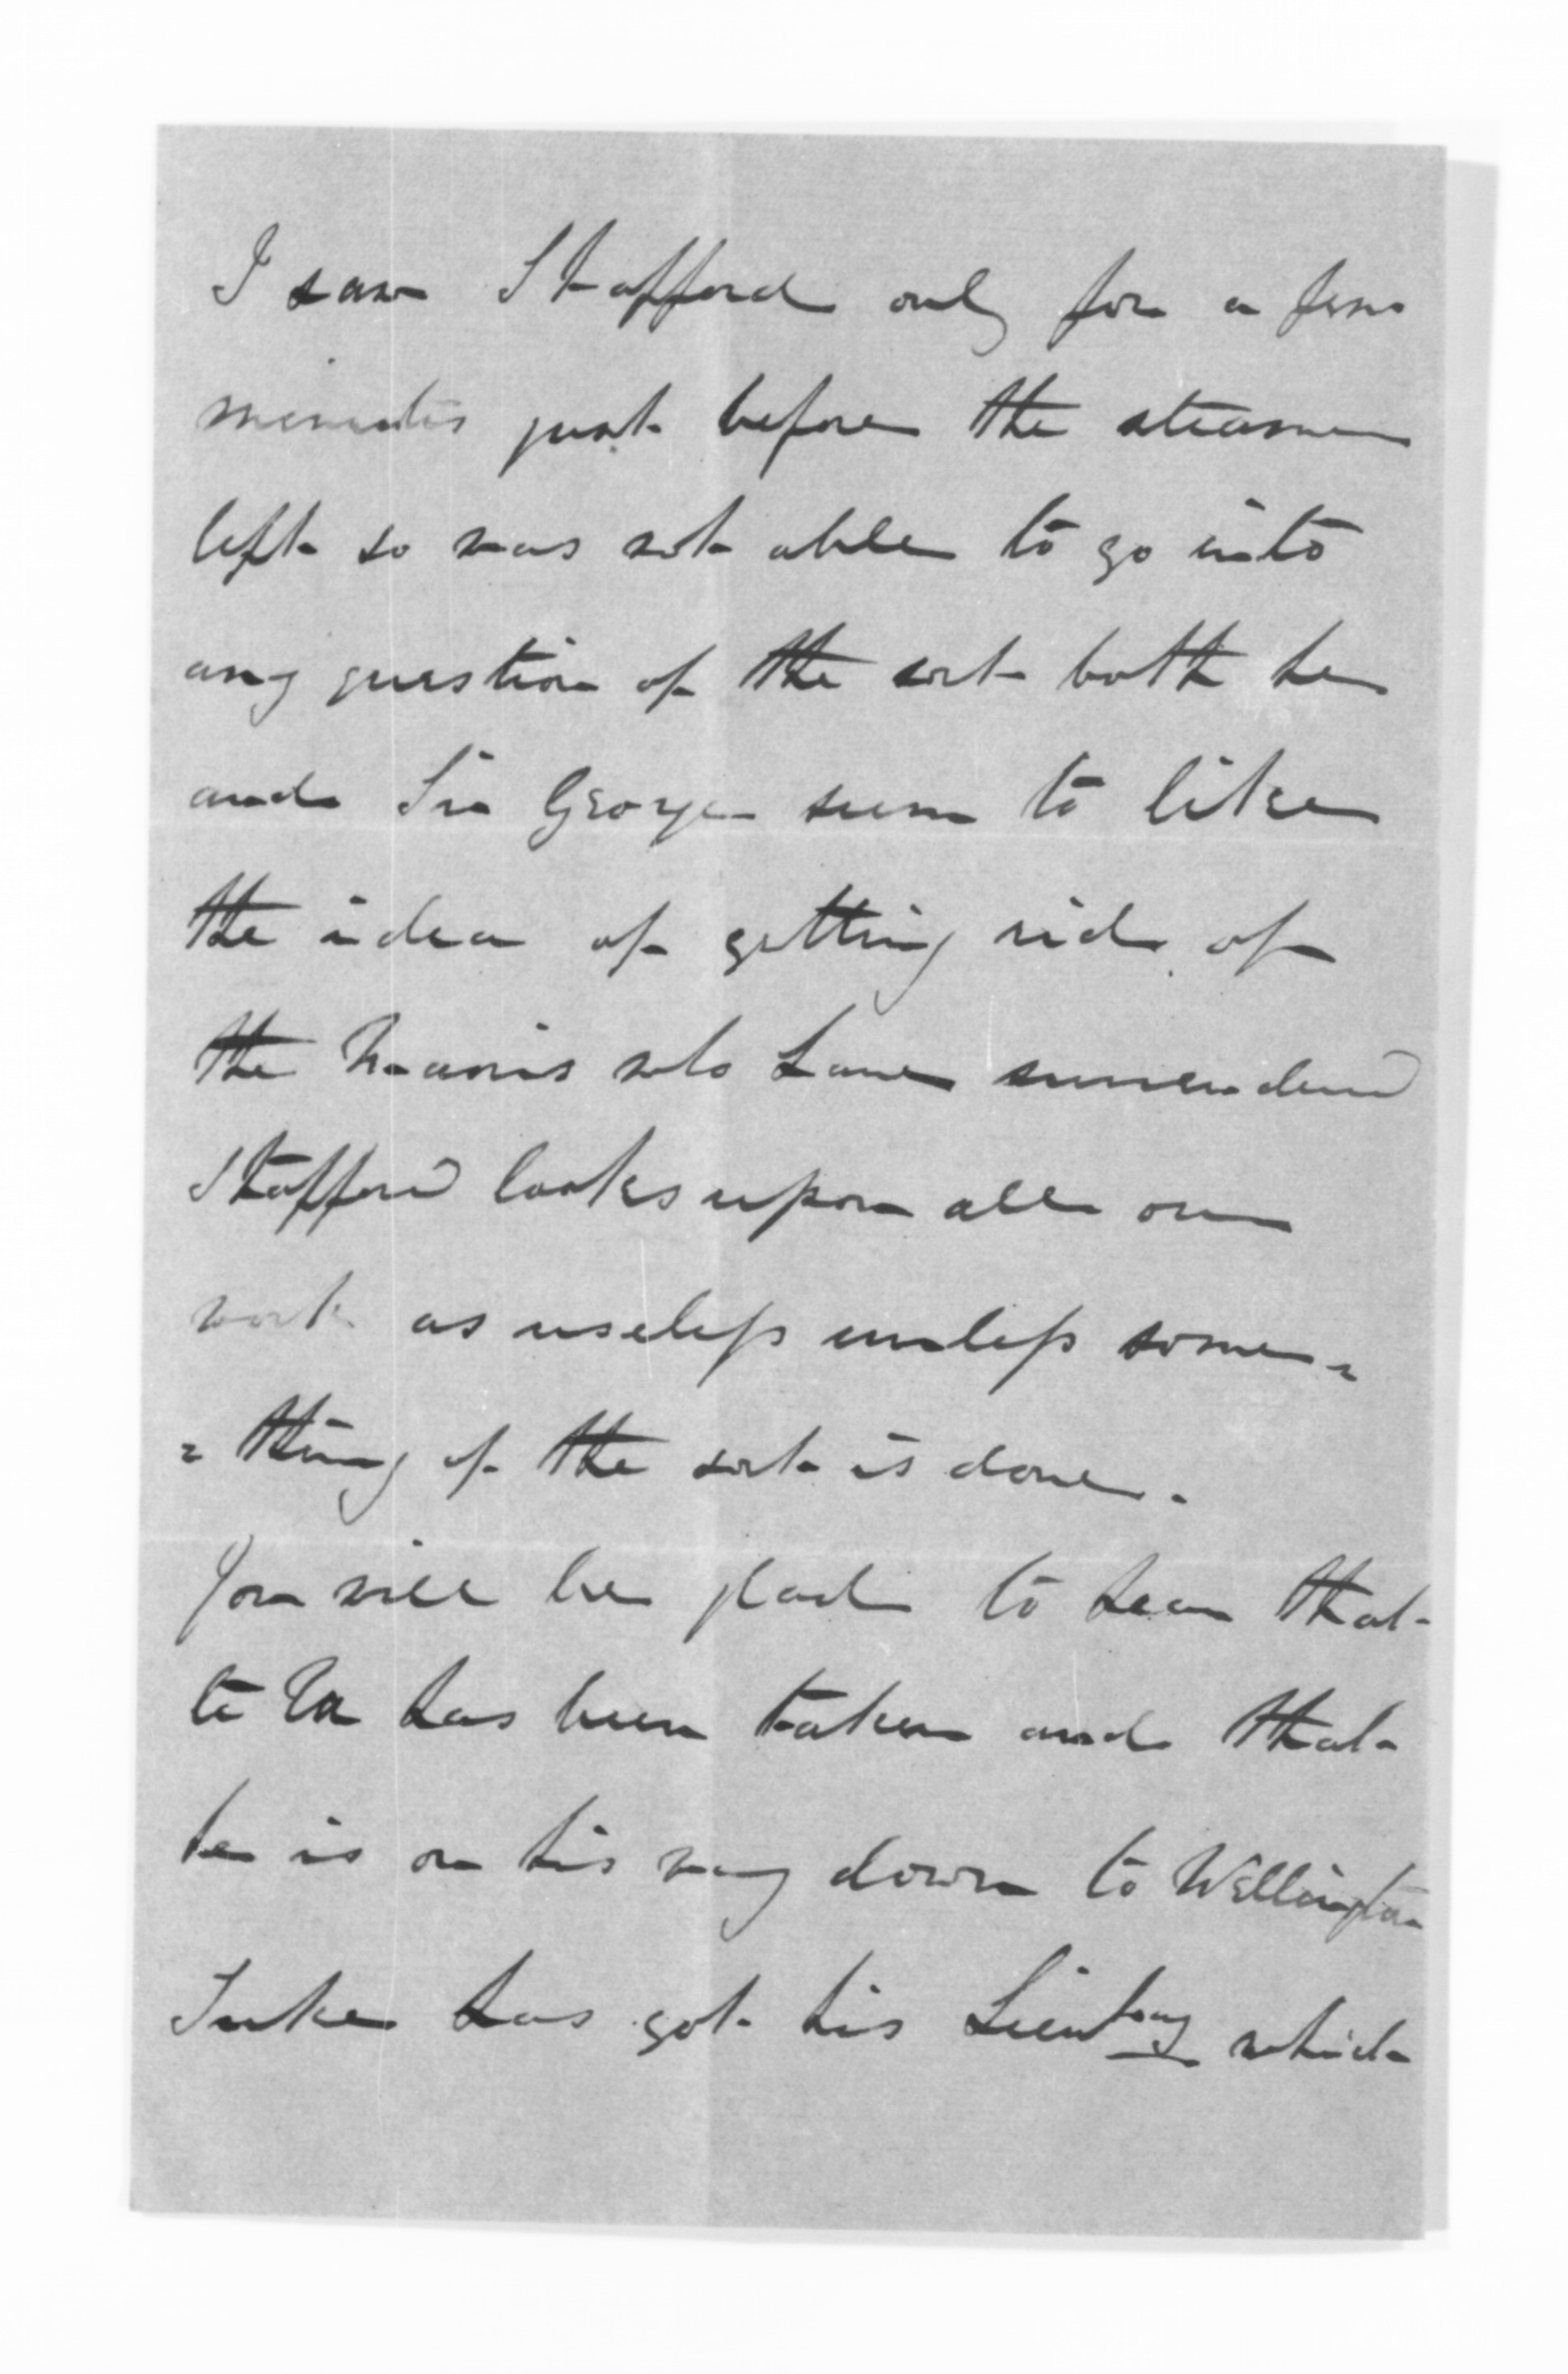 I saw Stafford only for a few
minutes just before the steamer
left so was not able to go into
any question of the sort both he
and Sir George seem to like
the idea of getting rid of
the Maoris who have surrendered
Stafford looks upon all our
work as useless unless some=
=thing of the sort is done.
You will be glad to hear that
te Ua has been taken and that
he is on his way down to Wellington
Tuke has got his Lieutcy which